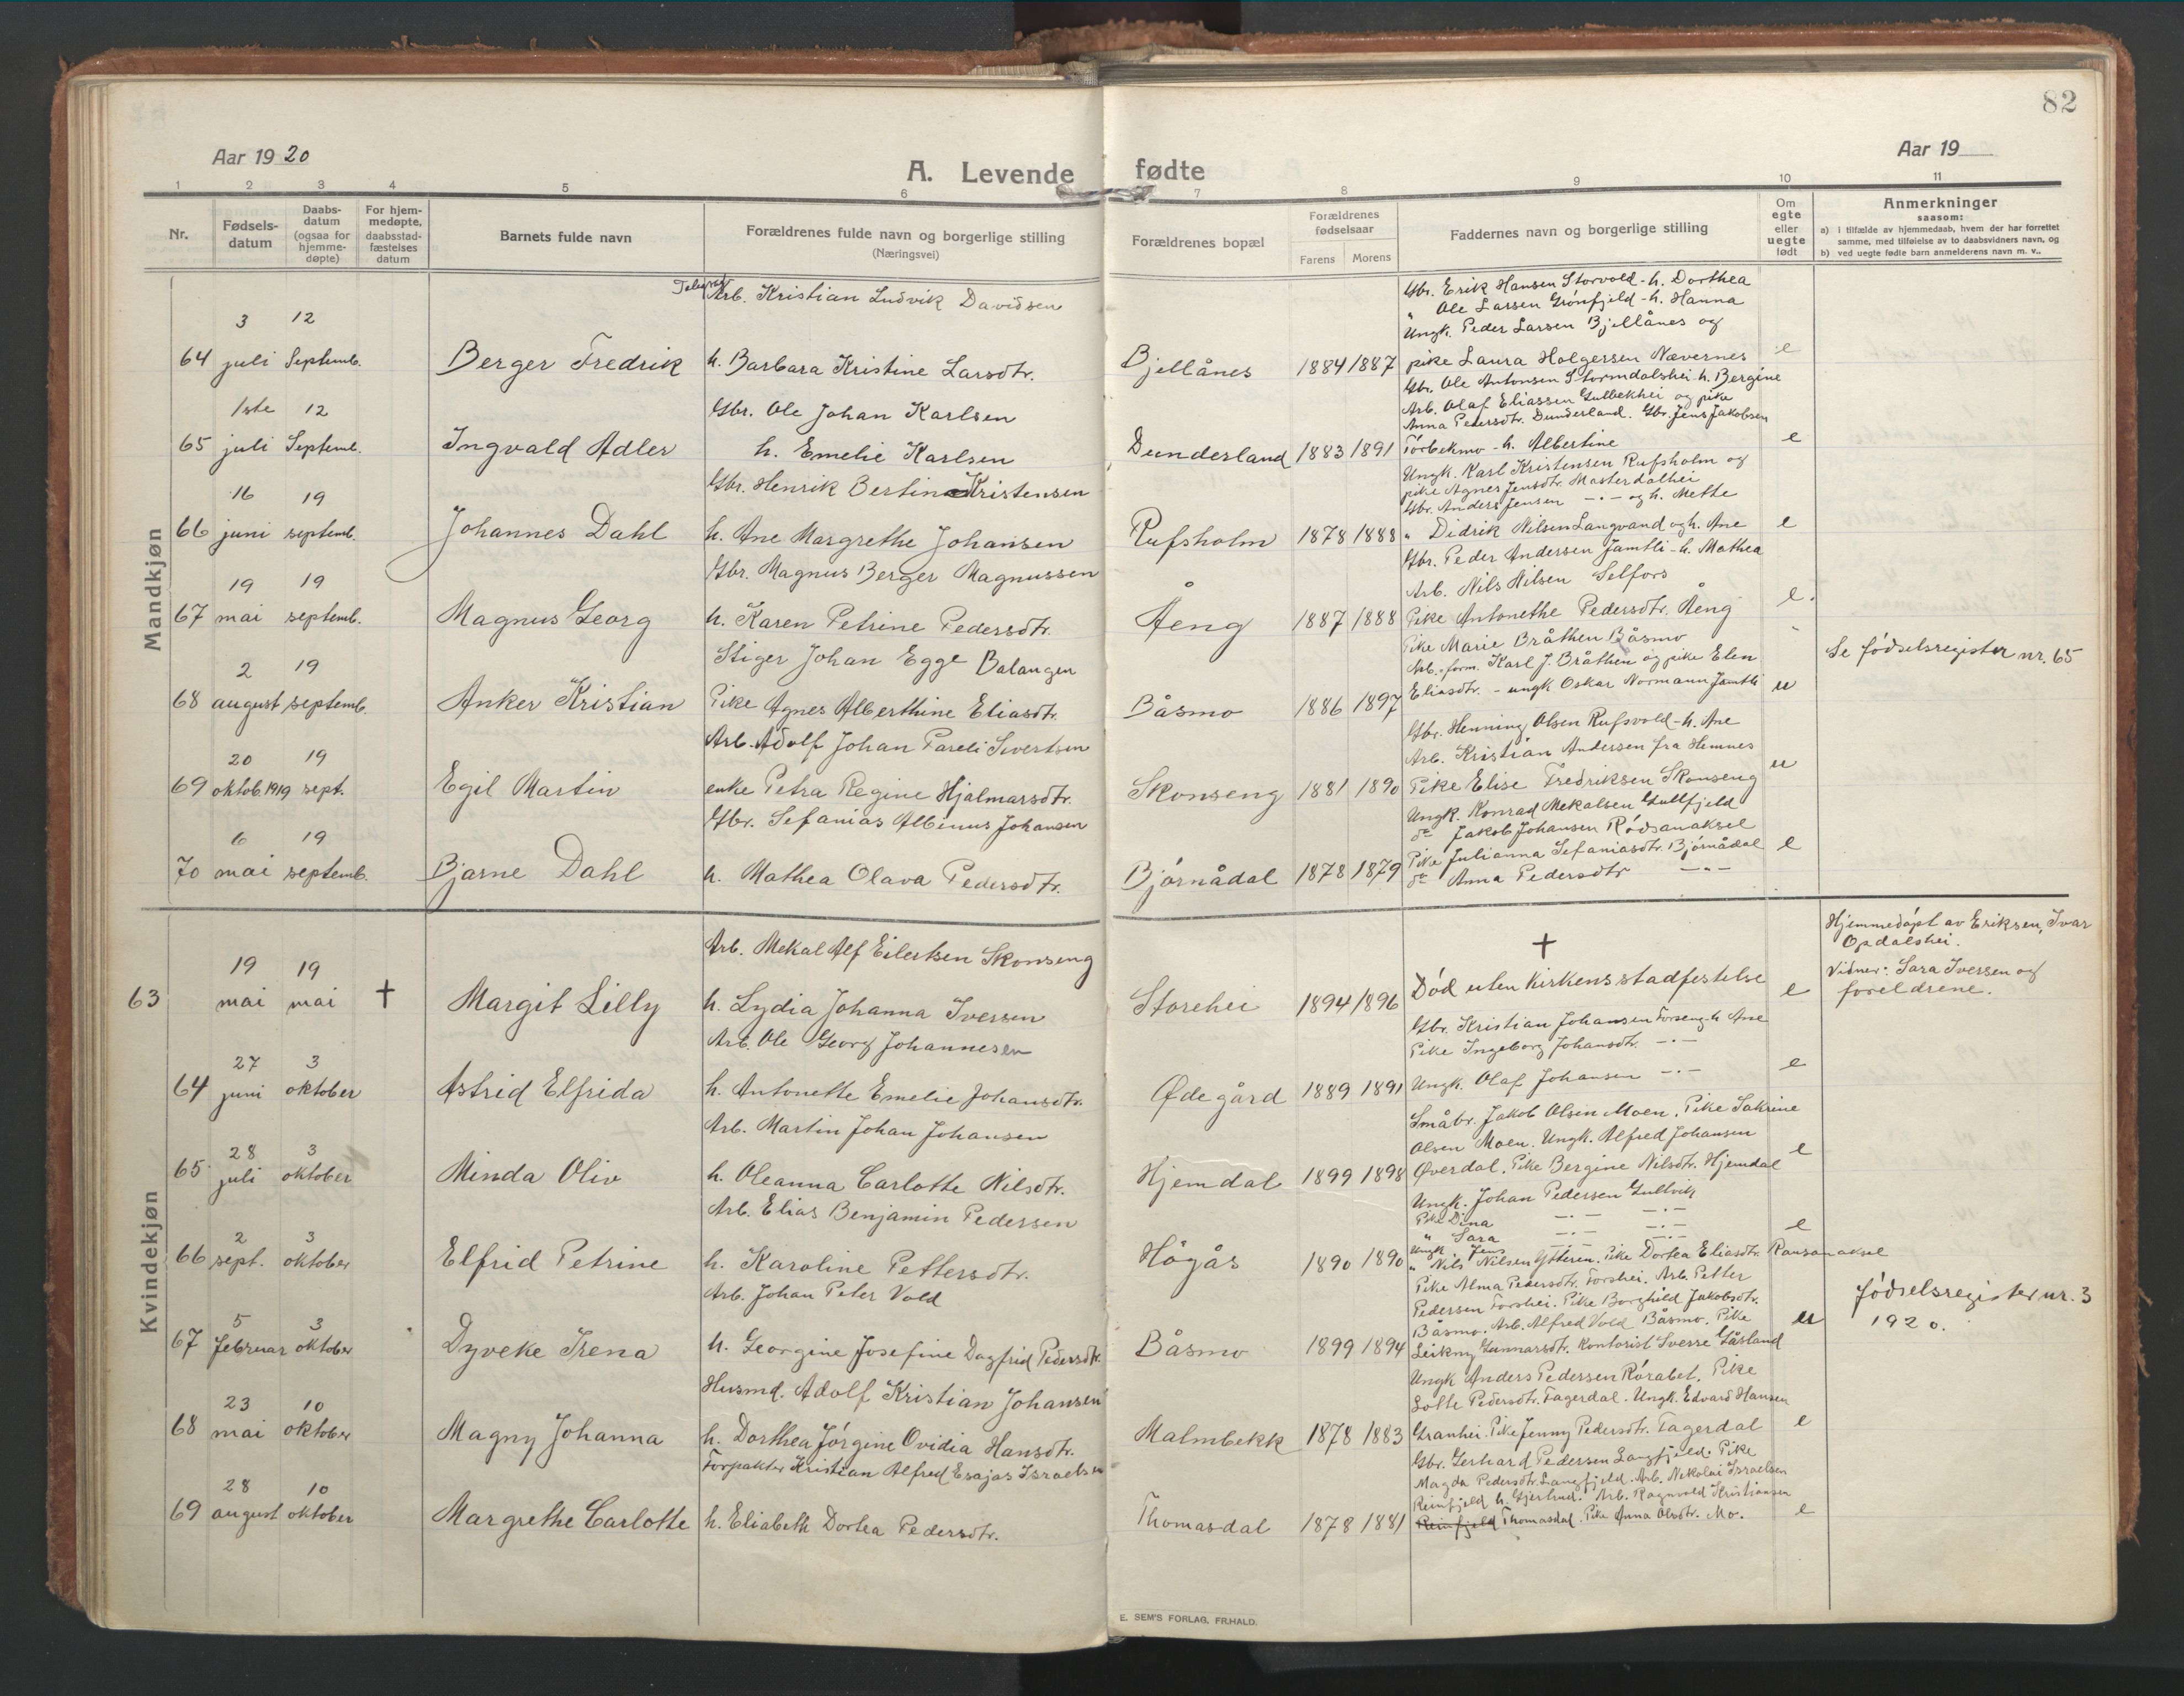 82
Aar 19 20
A. Levende fødte
Aar 19
1 2 3 4 5 6 7 8 9 10 11
Nr.
Fødsels-datum
Daabs-datum (ogsaa for hjemme-døpte)
For hjem-medøpte, daabsstad-fæstelses datum
Barnets fulde navn
Forældrenes fulde navn og borgerlige stilling
(Næringsvei)
Forældrenes bopæl
Forældrenes fødselsaar
Farens Morens
Faddernes navn og borgerlige stilling
Om egte eller uegte født
Anmerkninger
saasom:
a) i tilfælde av hjemmedaab, hvem der har forrettet
samme, med tilføielse av to daabsvidners navn, og
b) ved uegte fødte barn anmelderens navn m. v.,
Mandkjøn
Arb. Kristian Ludvik Davidsen
Gbr. Erik Hansen Storvold - h. Dorthea
" Ole Larsen Grønfjeld - h. Hanna
3 12
Ungk. Peder Larsen Bjellånes og
64 juli Septemb. Berger Fredrik h. Barbara Kristine Larsdtr. Bjellånes 1884 1887 pike Laura Holgersen Nævernes e
Gbr. Ole Antonsen Stormdalshei - h. Bergine
1ste 12 Gbr. Ole Johan Karlsen
Arb. Olaf Eliassen Gulbekhei og pike
Anna Petersdtr. Dunderland. Gbr. Jens Jakobsen
65 juli Septemb. Ingvald Adler h. Emelie Karlsen Dunderland 1883 1891 Tørbekmo - h. Albertine e
Ungk. Karl Kristensen Rufsholm og
16 19 Gbr. Henrik Kristensen
pike Agnes Jensdtr. Masterdalhei
Gbr. Anders Jensen -"- og h. Mette
66 juni septemb. Johannes Dahl h. Ane Margrethe Johansen Rufsholm 1878 1888 " Didrik Nilsen Langvand og h. Ane e
Gbr. Peder Andersen Jamtli - h. Mathea
19 19 Gbr. Magnus Berger Magnussen
Arb. Nils Nilsen Selfors
67 mai septemb. Magnus Georg h. Karen Petrine Pedersdtr. Åeng 1887 1888 Pike Antonethe Pedersdtr. Åeng e.
Pike Marie Bråthen Båsmo
2 19 Stiger Johan Egge Balangen
Arb.form. Karl J. Bråthen og pike Elen
Se fødselsregister nr. 65
68 august septemb. Anker Kristian Pike Agnes Alberthine Eliasdtr. Båsmo 1886 1897 Eliasdtr. - ungk Oskar Normann Jamtli u
Gbr. Henning Olsen Rufsvold - h. Ane
20 19 Arb. Adolf Johan Pareli Sivertsen
Arb. Kristian Andersen fra Hemnes
69 oktob. 1919 sept. Egil Martin enke Petra Regine Hjalmarsdtr. Skonseng 1881 1890 Pike Elise Fredriksen Skonseng u
Ungk. Konrad Mekalsen Gullfjeld
6 19 Gbr. Sefanias Albinus Johansen
do Jakob Johansen Rødsanaksel
Pike Julianna Sefaniasdtr. Bjørnådal
70 mai septemb. Bjarne Dahl h. Mathea Olava Pedersdtr. Bjørnådal 1878 1879 do Anna Pedersdtr -"- e
Kvindekjøn
Arb. Mekal Alf Eilertsen Skonseng
†
Hjemmedøpt av Eriksen, Ivar
Opdalshei.
Vidner: Sara Iversen og
foreldrene.
19 19
63 mai mai † Margit Lilly h. Lydia Johanna Iversen Storehei 1894 1896 Død uten kirkens stadfestelse e
Gbr. Kristian Johansen Forseng - h Ane
27 3 Arb. Ole Georg Johannesen
Pike Ingeborg Johansdtr. -"-
64 juni oktober Astrid Elfrida h. Antonette Emelie Johansdtr. Ødegård 1889 1891 Ungk. Olaf Johansen -"- e
Småbr. Jakob Olsen Moen. Pike Sakrine
28 3 Arb. Martin Johan Johansen
Olsen Moen. Ungk. Alfred Johansen
65 juli oktober Minda Oliv h. Oleanna Carlotte Nilsdtr. Hjemdal 1899 1898 Øverdal. Pike Bergine Nilsdtr. Hjemdal e
Ungk. Johan Pedersen Gullvik
2 3 Arb. Elias Benjamin Pedersen
Pike Dina -"- -"-
" Sara -"- -"-
Ungk. Jens -"-
66 sept. oktober Elfrid Petrine h. Karoline Pettersdtr. Högås 1890 1890 e
" Nils Nilsen Ytteren. Pike Dortea Eliasdtr. Ransanaksel
Pike Alma Pedersdtr. Forshei. Arb. Petter
5 3 Arb. Johan Peter Vold
Pedersen Forshei. Pike Borghild Jakobsdtr.
Båsmo. Arb. Alfred Vold Båsmo. Pike
fødselsregister nr. 3
1920.
67 februar oktober Dyveke Irena h. Georgine Josefine Dagfrid Pedersdtr. Båsmo 1899 1894 Leikny Gunnarsdtr. kontorist Sverre Gåsland u
Ungk Anders Pedersen Rørabet. Pike
23 10 Husmd. Adolf Kristian Johansen
Lotte Pedersdtr. Fagerdal. Ungk. Edvard Hansen
68 mai oktober Magny Johanna h. Dorthea Jørgine Ovidia Hansdtr. Malmbekk 1878 1883 Granhei. Pike Jenny Pedersdtr. Fagerdal e
Gbr. Gerhard Pedersen Langfjeld. Pike
28 10 Forpakter Kristian Alfred Esajas Israelsen
Magda Pedersdtr. Langfjeld. Arb. Nikolai Israelsen
Reinfjeld h. Gjertrud. Arb. Ragnvald Kristiansen
69 august oktober Margrethe Carlotte h. Eliabeth Dortea Pedersdtr. Thomasdal 1878 1881 Reinfjeld Thomasdal. Pike Anna Olsdtr. Mo. e
E. SEM'S FORLAG, FR.HALD.